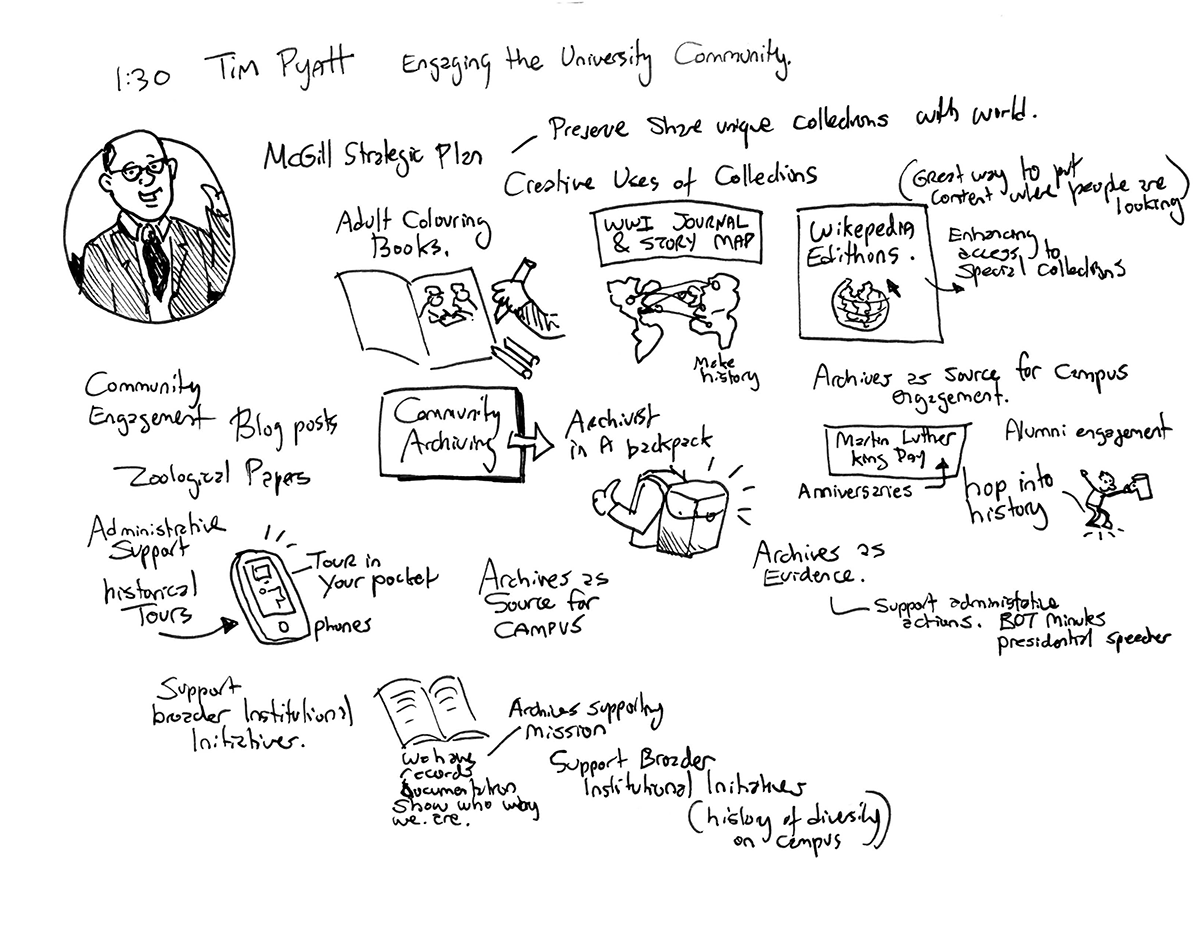 1:30 Tim Pyatt Engaging the University Community.
McGill Strategic Plan
Preserve Share unique Collections with world.
Creative Uses of Collections
(Great way to put
content where people are
looking)
Adult Colouring
Books.
WWI JOURNAL
& STORY MAP
Make
history
Wikepedia
Edithons.
Enhancing
access to
Special Collections
Community
Engagement
Blog posts
Zoological Papers
Community
Archiving
Archivist
in A backpack
Archives as source for Campus
engagement.
Martin Luther
King Day
Anniversaries
Alumni engagement
hop into
history
Administrative
Support
historical
Tours
Tour in
Your pocket
phones
Archives as
Source for
CAMPUS
Archives as
Evidence.
Support administative
actions. BOT Minutes
presidential speeches
Support
broader Institutional
Initiatives.
We have
records
documentation
Show who why
we are.
Archives supporting
mission
Support Broader
Institutional Initiatives
(history of diversity)
on campus